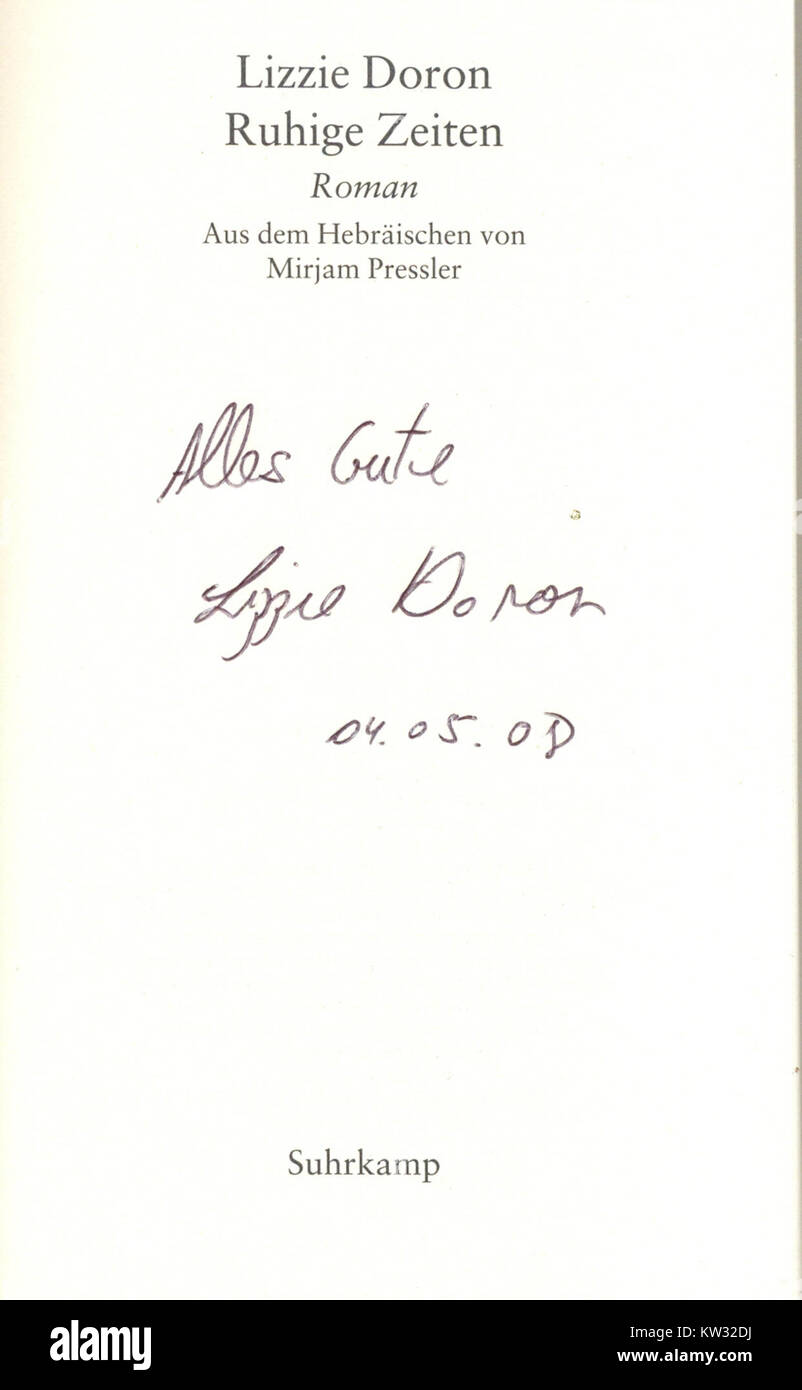 Lizzie Doron
Ruhige Zeiten
Roman
Aus dem Hebräischen von
Mirjam Pressler
Alles Gute
Lizzie Doron
04.05.08
Suhrkamp
alamy
Image ID: KW32DJ
www.alamy.com